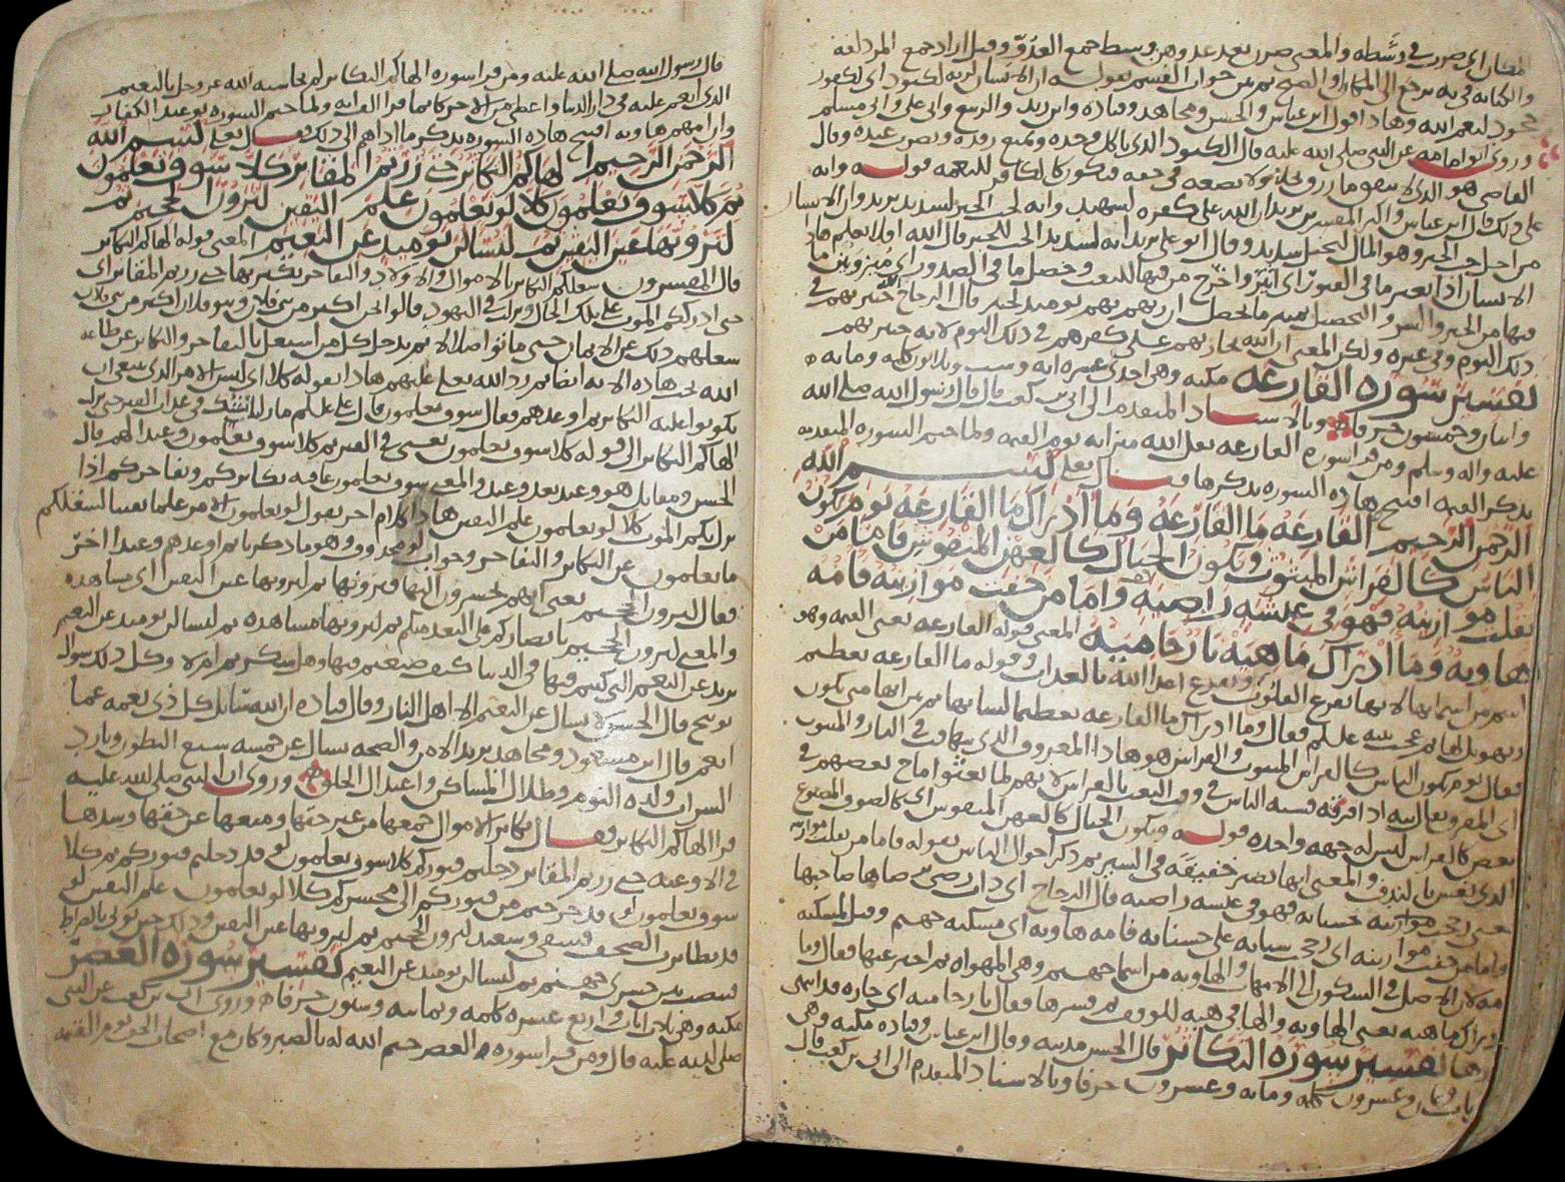 المكان اي صرن في وسطه والمعنى صرن بعدوهن وسط جمع العدو وقيل اراد جمع المزدلفة
والكناية في به ترجع الى المكان او الصبح ثم بين جواب القسم بقوله ان الانسان لربه لكنود اي لكفور
جحود لنعم الله وهذا قول ابن عباس والحسن ومجاهد وقتادة وابن زيد والربيع وابي علي وابي مسلم
وروى ابو امامه عن النبي صلى الله عليه قال الكنود الذي ياكل وحده ويمنع رفده ويضرب عبده وقال
القاضي هو الذي لا ينفق ما رزق
على ذلك قال ابن عباس واكثر المفسرين يريد ان الله على كفره لشهيد وانه لحب الخير لشديد يريد وان الانسان
من اجل حب الخير وهو المال لبخيل شديد وقال ابو علي يريد انه لشديد الحب للخير قال الله افلا يعلم هذا
الانسان اذا بعثر ما في القبور اي اثير واخرج من فيها للبعث وحصل ما في الصدور اي ميز وبين ما
فيها من الخير والشر والتحصيل تمييز ما يحصل ان ربهم بهم يومئذ لخبير قال الزجاج الله خبير بهم في
ذلك اليوم وفي غيره ولكن المعنى ان الله يجازيهم على كفرهم في ذلك اليوم لانه خبير بهم
تفسير سورة القارعه مكيه وهي احدى عشره ايه وست وثلاثون كلمه ومايه
واثنان وخمسون حرفا وبالاسناد المتقدم الى ابي بن كعب قال قال رسول الله صلى الله
عليه واله وسلم ومن قرا سورة القارعه ثقل الله ميزانه يوم القيمه ولما ختم السوره المتقدمه
بذكر القيمه افتتح هذه السوره بذكرها فقال تعلى بسم الله
الرحمن الرحيم القارعه ما القارعه وما ادراك ما القارعه يوم يكون
الناس كالفراش المبثوث وتكون الجبال كالعهن المنفوش فاما من
ثقلت موازينه فهو في عيشه راضيه واما من خفت موازينه فامه
هاويه وما ادراك ما هيه نار حاميه المعنى قوله القارعه يعني القيمه وهو
اسم من اسمايها لانها تقرع القلوب وتقرع اعدا الله بالعذاب وقوله ما القارعه تعظيم
وتهويل لها ثم عجب نبيه عليلم فقال وما ادراك ما القارعه تعظيما لشانها ثم بين انها متى تكون
فقال يوم يكون الناس كالفراش المبثوث والفراش هو هاذا المعروف الذي يتهافت في النار والمبثوث
اي المفرق يقال بثه اذا فرقه فشبه الناس في وقت البعث بالفراش لانهم لما بعثوا ماج بعضهم في
بعض كالفراش ليس له جهه واحده قوله وتكون الجبال كالعهن المنفوش اي كالصوف المصبوغ
الذي نفش بالندف والمعنى انها تصير خفيفه في السير ثم ذكر احوال الناس بقوله فاما من ثقلت موازينه
يعني رجحت حسناته فهو في عيشه راضيه قال الزجاج اي ذات رضى يرضاها صاحبها
واما من خفت موازينه اي رجحت سياته على حسناته فامه هاويه اي مسكنه جهنم وقيل لمسكنه
امه لان الاصل في السكون الى الامهات والهاويه من اسما جهنم وهي المهواه ثم اخبر عنها فقال وما
ادراك ما هيه يعني الهاويه والها في هيه للوقف ثم فسرها فقال نار حاميه اي حاره قد اشتد
حرها تفسير سورة التكاثر قال الحسن مدنيه وقال ابن عباس وقتاده مكيه وهي
ثمان ايات وثمان وعشرون كلمه ومايه وعشرون حرفا وبالاسناد المتقدم الى ابي بن كعب قال
قال رسول الله صلى الله عليه ومن قرا سورة الهاكم التكاثر لم يحاسبه الله عز وجل بالنعيم
الذي انعم عليه في دار الدنيا واعطي من الاجر كانما قرا الف ايه ولما ختم السوره بوعيد الكفار
وان امهم هاويه افتتح هاذه السوره بذكر ما اداهم الى ذلك فقال تعلى بسم الله
الرحمن الرحيم الهاكم التكاثر حتى زرتم المقابر كلا سوف تعلمون
ثم كلا سوف تعلمون كلا لو تعلمون علم اليقين لترون الجحيم ثم
لترونها عين اليقين ثم لتسالن يومئذ عن النعيم المعنى قوله الهاكم التكاثر
قال المفسرون شغلكم التكاثر بالاموال والاولاد والتفاخر بكثرتها حتى زرتم المقابر اي
حتى ادرككم الموت على تلك الحال ونزلت في اليهود قالوا نحن اكثر من بني فلان وبنو فلان اكثر من بني فلان
شغلهم ذلك عن الايمان حتى ماتوا ضلالا ثم يدخل كل من اشتغل بالتفاخر والتكاثر عن طاعه
الله تحت هاذه الايه ايضا ثم رد الله تعلى عليهم هاذا بقوله كلا اي ليس الامر الذي ينبغي ان
يكونوا عليه التكاثر ثم اوعدهم فقال سوف تعلمون قال علي عليلم ما زلنا نشك في عذاب القبر حتى نزلت
الهاكم التكاثر الى قوله كلا سوف تعلمون يعني في القبر ثم كلا سوف تعلمون وعيد لهم قال
الحسن ومقاتل هو وعيد بعد وعيد والمعنى سوف تعلمون عاقبه تكاثركم وتفاخركم اذا
نزل بكم الموت كلا لو تعلمون علم اليقين هاذا كلام اخر يقول لو تعلمون الامر علما يقينا لشغلكم
ما تعلمون عن التكاثر والتفاخر وجواب لو محذوف وهو ما ذكرنا ثم اوعدهم وعيدا اخر
فقال لترون الجحيم يعني انهم يحشرون اليها فيرونها ثم لترونها عين اليقين اي مشاهده
والمعنى لترون الجحيم بابصاركم على البعد منكم ثم لترونها مشاهده ثم لتسالن يومئذ عن النعيم
يريد عن النعيم التي كنتم فيها في الدنيا كيف صنعتم فيها وهل شكرتم ام لا وكل ذلك سوال
توبيخ قال الحسن لا يسال عن النعيم الا اهل النار وقال قتاده ان الله سايل كل ذي نعمه عما
انعم قال ابن مسعود ومجاهد يريد الامن والصحه يسال عن خمسه شبع البطون وبارد
الشراب ولذه النوم وظلال المساكن واعتدال الخلق وروى ان النبي صلى الله عليه
قرا الهاكم التكاثر فقال تكاثر الاموال جمعها من غير حقها ومنعها عن حقها وشدها
في الاوعيه حتى زرتم المقابر دخلتم قبوركم كلا سوف تعلمون لو قد دخلتم قبوركم ثم كلا
سوف تعلمون لو قد خرجتم من قبوركم الى محشركم كلا لو تعلمون علم اليقين لو
قد تطايرت الصحف فشقي وسعيد لترون الجحيم ثم لترونها عين اليقين وذلك حين يوتى بالصراط
فينصب بين جسري جهنم ثم لتسالن يومئذ عن النعيم تفسير سورة العصر
مكيه وهي ثلاث ايات واربع عشره كلمه وثمانيه وستون حرفا وروى ابي بن كعب عن النبي
صلى الله عليه قال ومن قرا سورة والعصر ختم الله له بالصبر وكان مع اصحاب الحق يوم القيمه